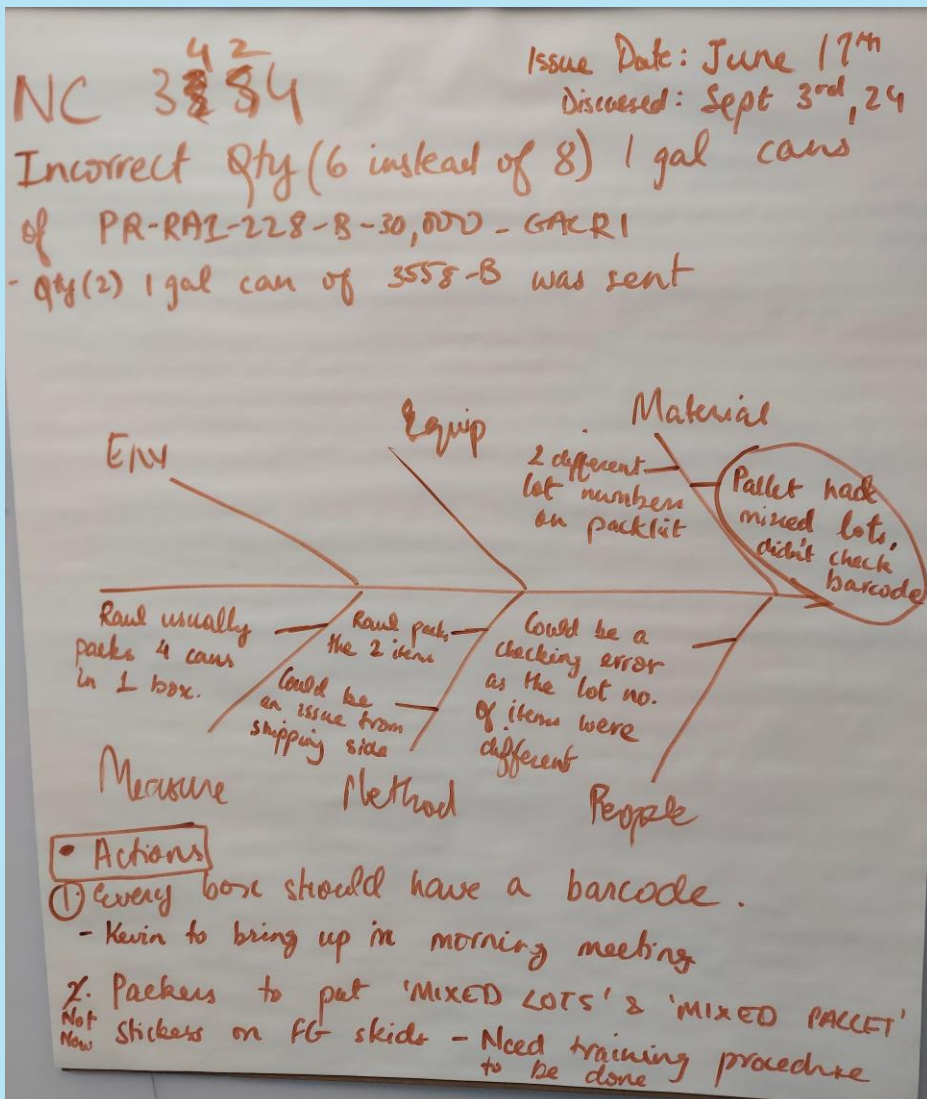 NC 3424
Issue Date: June 17th
Discussed: Sept 3rd, 24
Incorrect Qty (6 instead of 8) 1 gal cans
of PR-RAL-228-B-30,000-GACRI
- Qty (2) 1 gal can of 3558-B was sent
Env
Equip
Material
2 different
lot numbers
on packlist
Pallet had
mixed lots,
didn't check
barcode
Raul usually
packs 4 cans
in 1 box.
Raul packs
the 2 items
Could be
an issue from
shipping side
Could be a
checking error
as the lot no.
of items were
different
Measure
Method
People
• Actions
1. Every box should have a barcode.
- Kevin to bring up in morning meeting
2. Packers to put 'MIXED LOTS' & 'MIXED PALLET'
Not Now
stickers on FG skids - Need training procedure
to be done